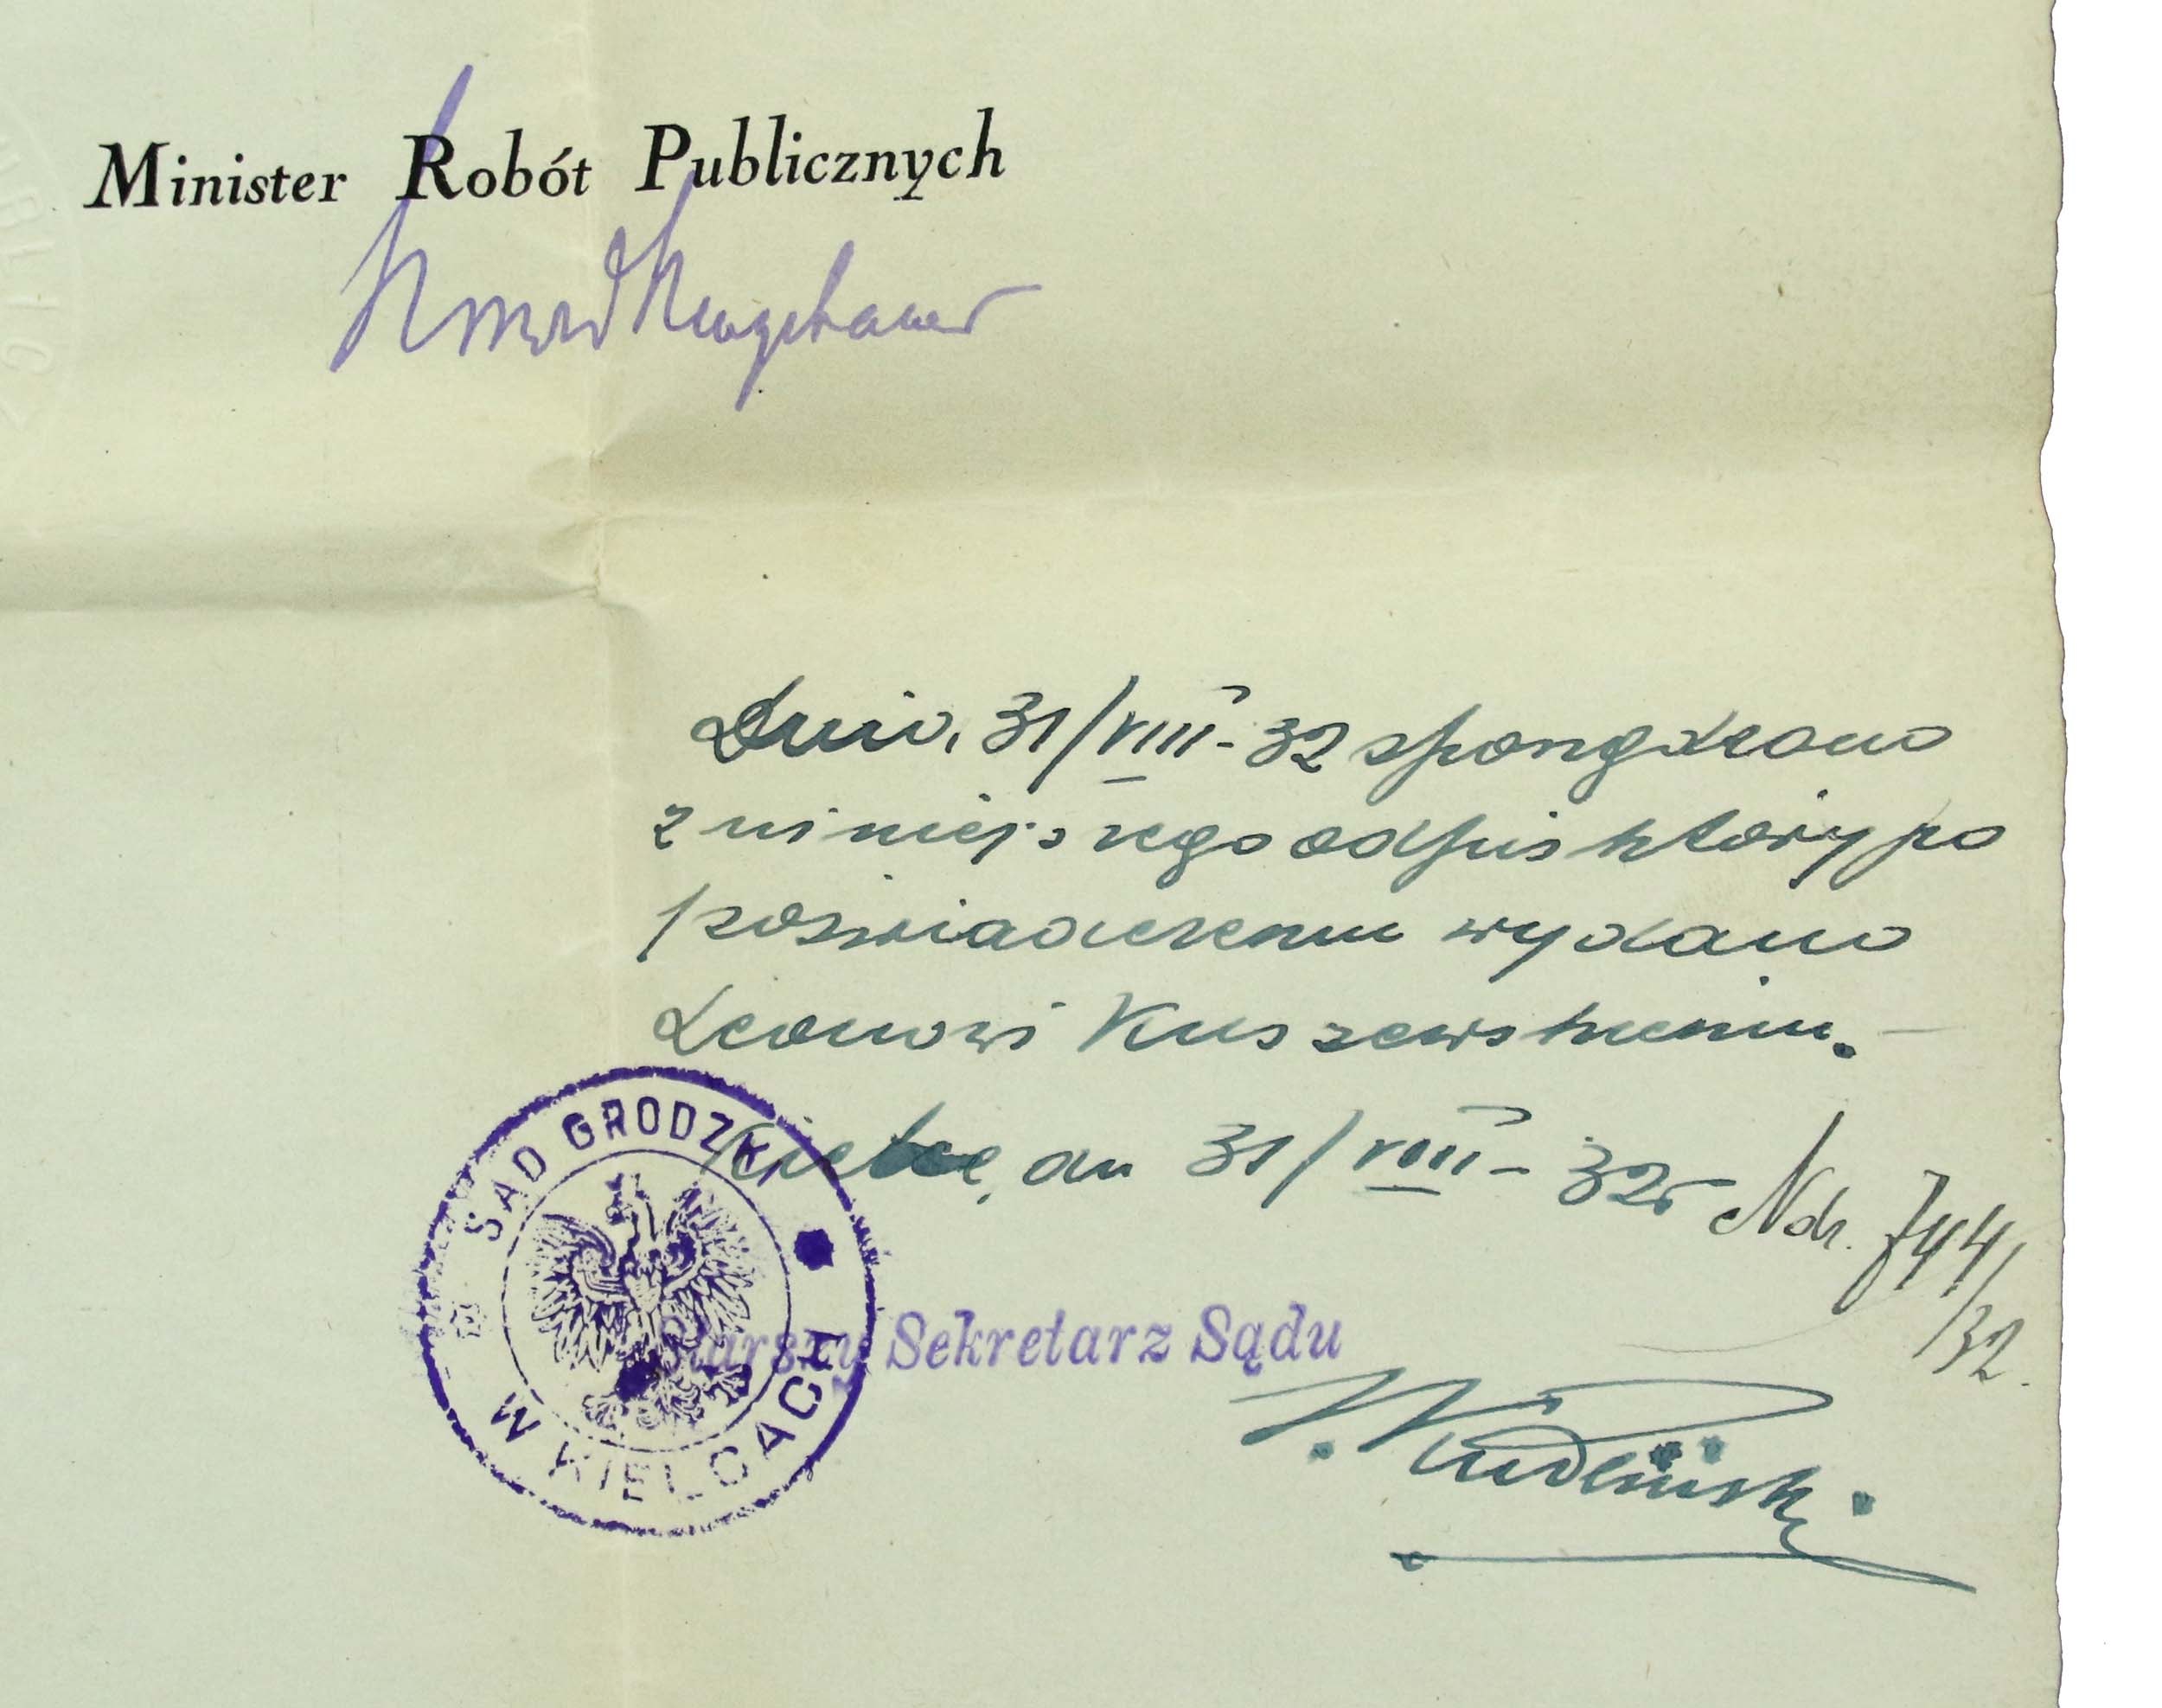 Minister Robót Publicznych
Dnia 31/VIII-32 sporządzono
z niniejszego odpis który po
poświadczeniu wydano
Leonowi Kuszewskiemu.
Kielce, dn 31/VIII-32r Ndr. 744/32.
SĄD GRODZKI
W KIELCACH
Starszy Sekretarz Sądu